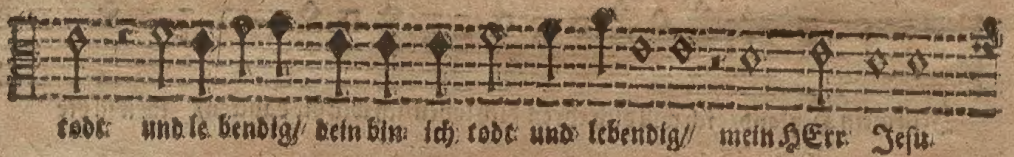 todt und le bendig/ dein bin ich todt und lebendig/ mein HErr Jesu